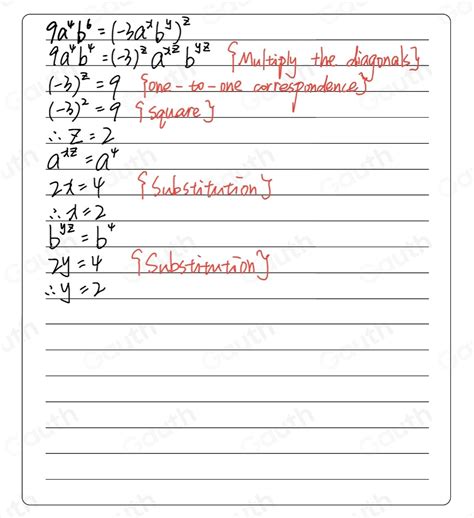 9a⁴b⁶ = (-3aˣbʸ)ᶻ
9a⁴b⁴ = (-3)ᶻ aˣᶻ bʸᶻ {Multiply the diagonals}
(-3)ᶻ = 9 {one-to-one correspondence}
(-3)² = 9 {square}
∴ z = 2
aˣᶻ = a⁴
2x = 4 {Substitution}
∴ x = 2
bʸᶻ = b⁴
2y = 4 {Substitution}
∴ y = 2